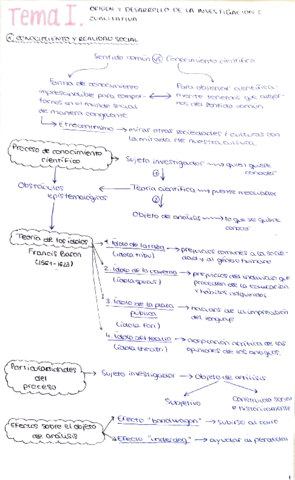 Tema I. ORIGEN Y DESARROLLO DE LA INVESTIGACIÓN CUALITATIVA
1. CONOCIMIENTO Y REALIDAD SOCIAL
Sentido común vs Conocimiento científico
Forma de conocimiento
imprescindible para
en el mundo social
de manera congruente
Para observar científica
mente tenemos que
del sentido común
Etnocentrismo → mirar otras sociedades / culturas con
la mirada de nuestra cultura.
Proceso de conocimiento
científico
Sujeto investigador → quien quiere
conocer
Obstáculos
epistemológicos
Teoría científica → puente mediador
Objeto de análisis → lo que se quiere
conocer
Teoría de los ídolos
Francis Bacon
1. Ídolo de la tribu → prejuicios comunes a la
(idola tribu)
y al género humano
2. Ídolo de la caverna → prejuicios del individuo que
(idola specus)
proceden de la educación
y hábitos adquiridos
3. Ídolo de la plaza
pública
(idola fori)
del lenguaje
4. Ídolo del teatro →
(idola theatri)
opiniones de los
Particularidades
del
proceso
Sujeto investigador → Objeto de análisis
Subjetivo
Construido social
e históricamente
Efectos sobre el objeto
de análisis
Efecto "bandwagon" → subirse al carro
Efecto "underdog" → ayudar al perdedor
1